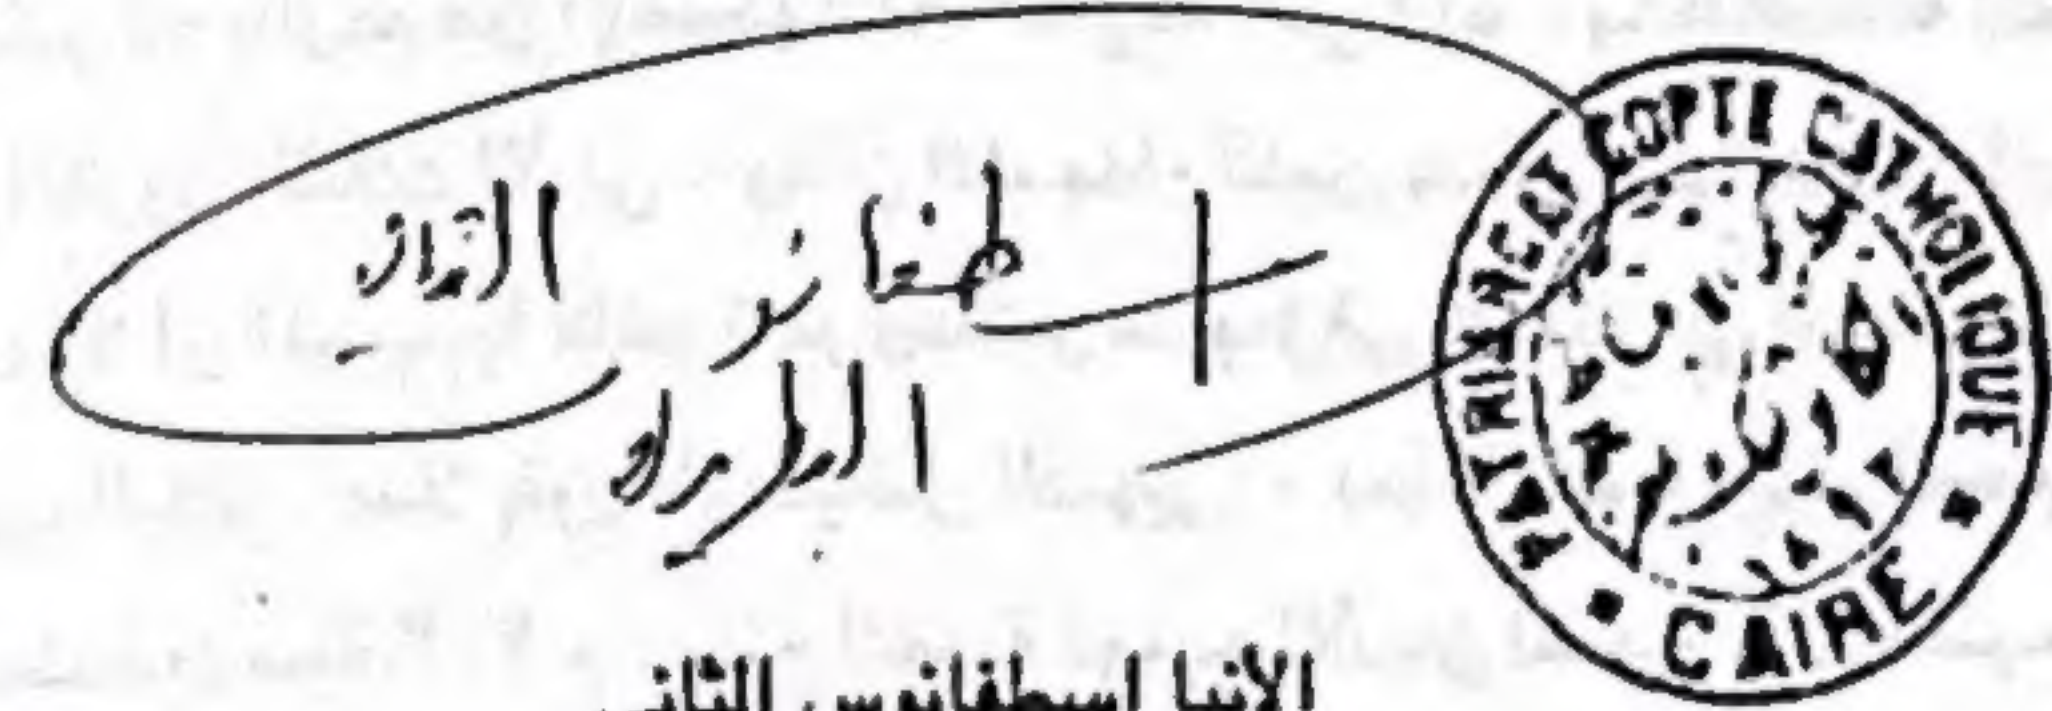 اسطفانوس الثاني
البطريرك
PATRIARCAT COPTE CATHOLIQUE
CAIRE
الأنبا اسطفانوس الثاني